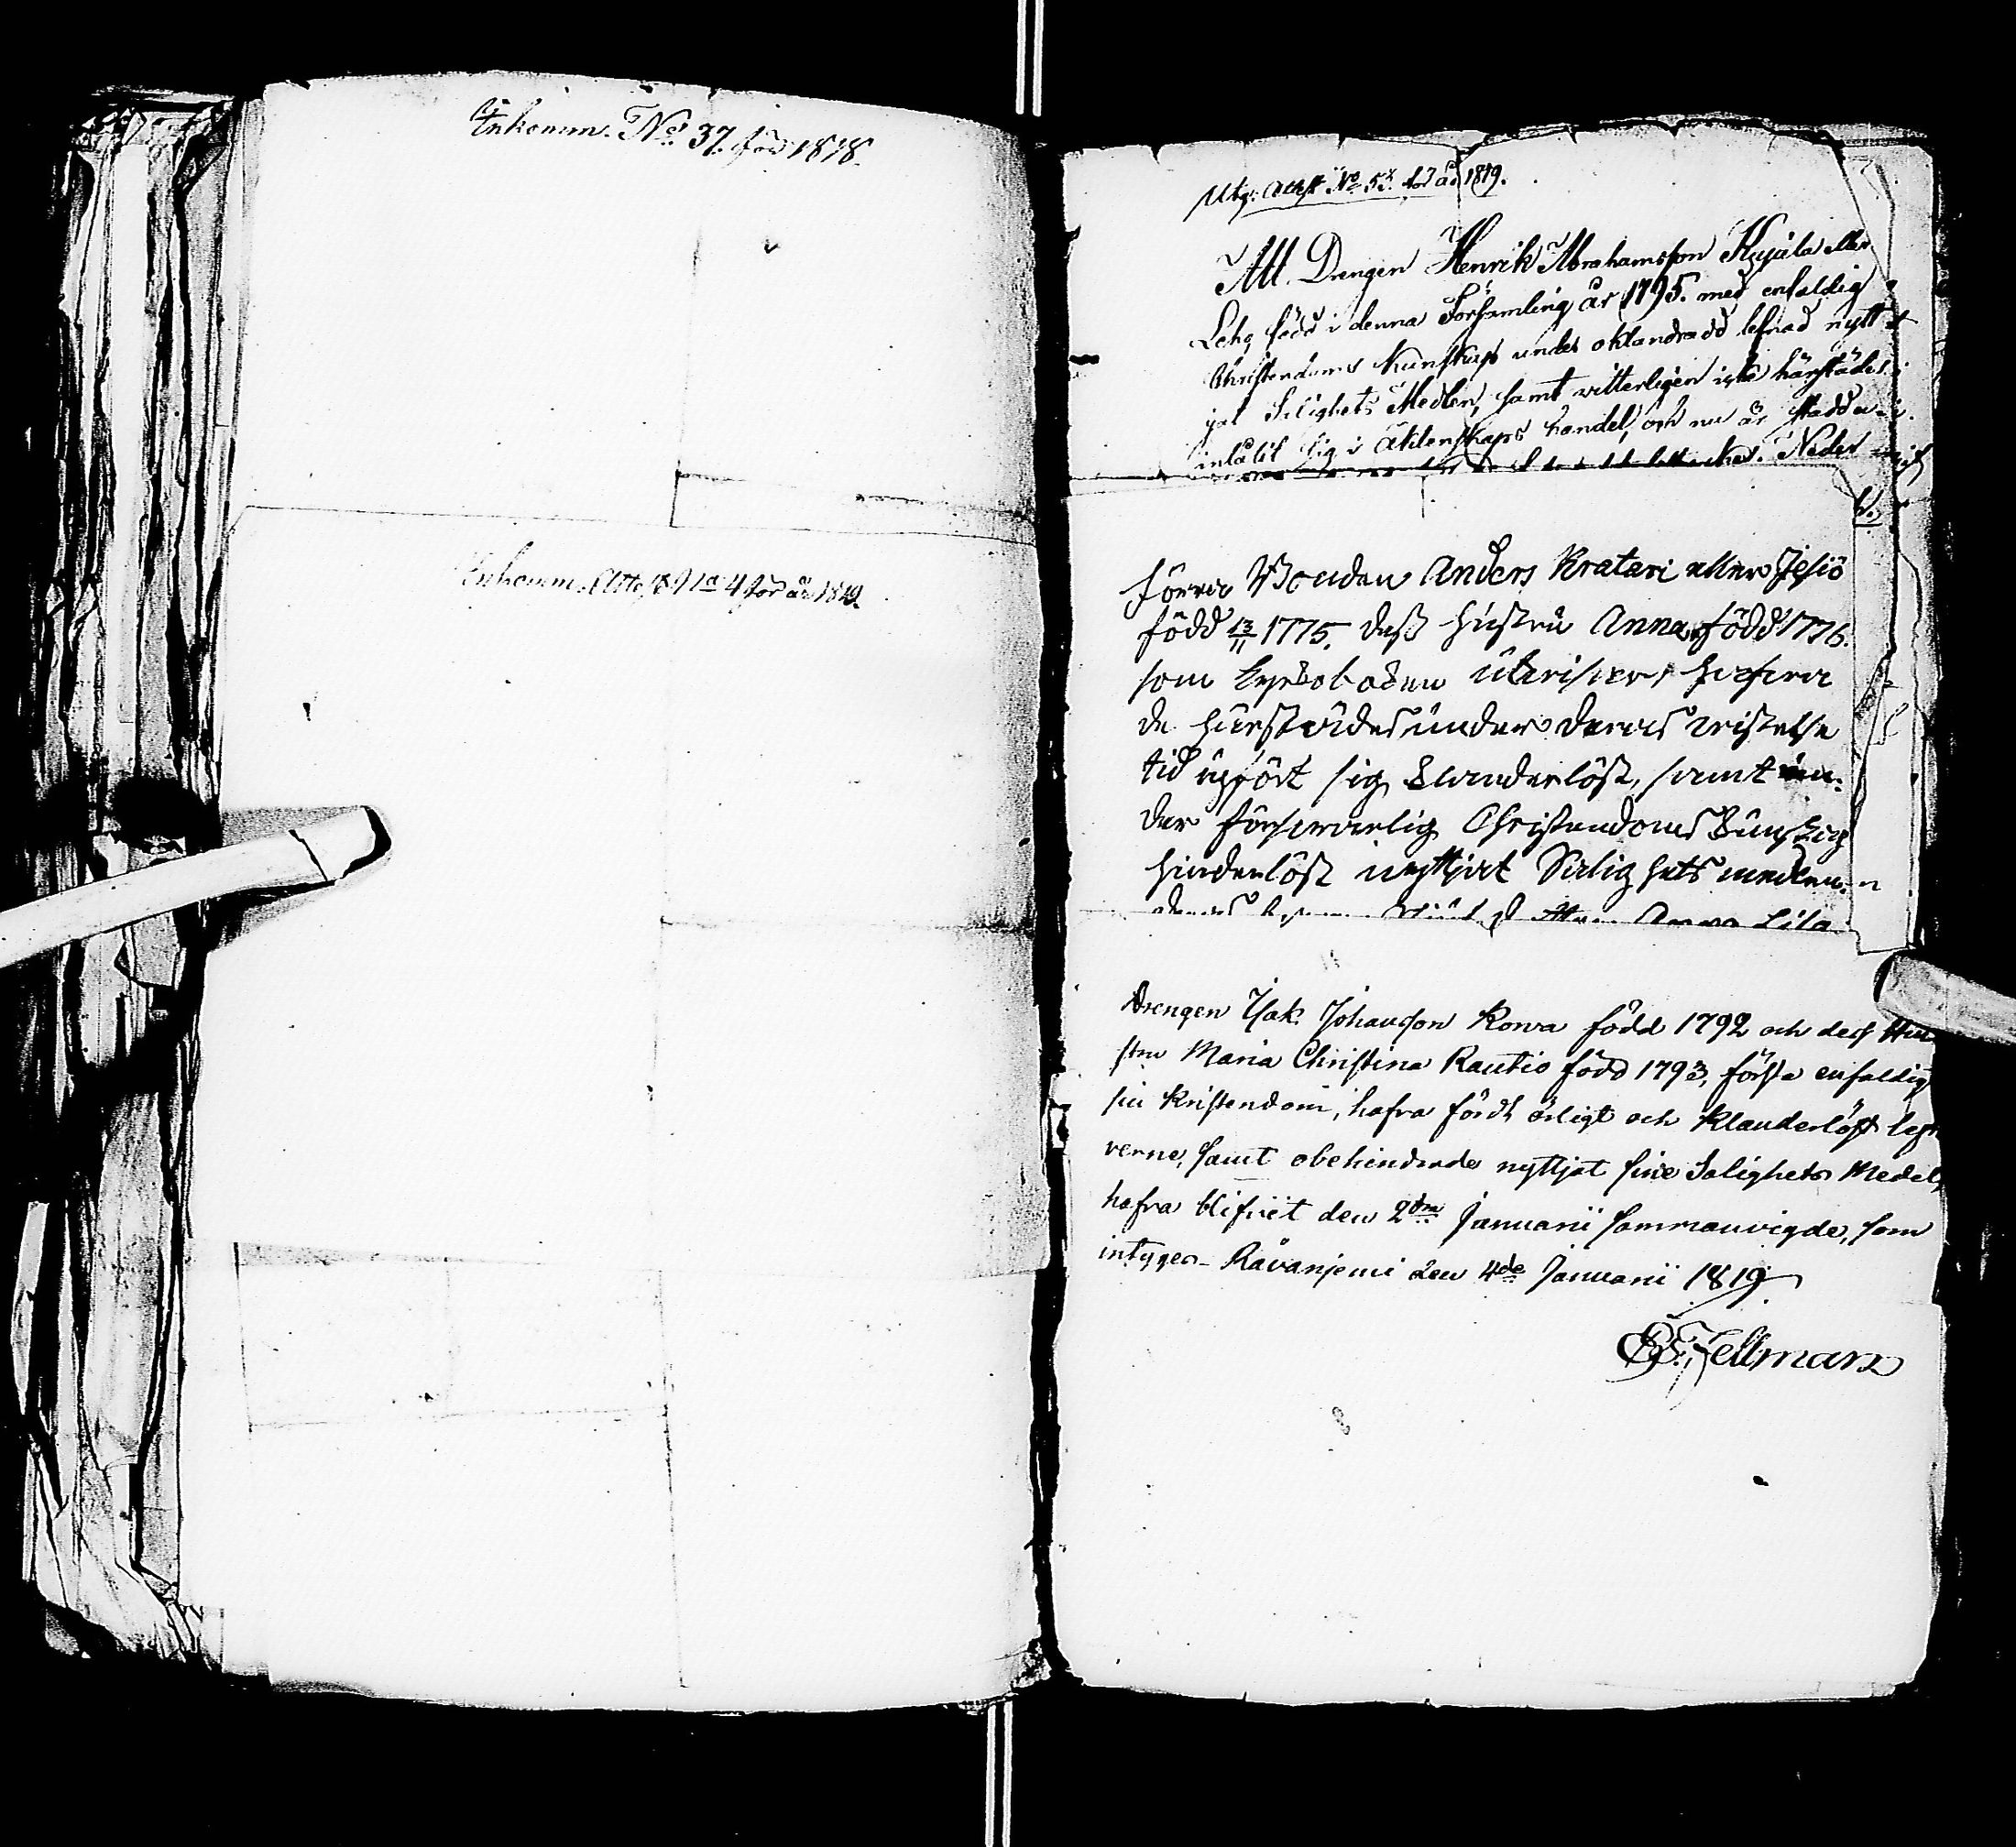 Inkomm. No. 37. för 1818.
Inkomm. Atte, No 4 för år 1819.
Utg: Attest No 5 för år 1819.
Att Drengen Henrik Abrahamsson Kujala eller
Leho född i denna Församling år 1795. med enfaldig
Christendoms kunskap under oklandradd lefnad nytt
jat Salighets Medlen, samt vitterligen icke härstädes
inlåtit sig i Äktenskaps handel, och nu är stadd
Neder
förra Bonden Anders Kratari eller Jesiö
född 13/11 1775. dess hustru Anna född 1776.
som
de härstädes under deras vistelse
tid upfört sig klanderlöst, samt un-
der försvarlig Christendoms Kunskap
hinderlöst nyttjat Salighets medlen
Anna Lisa
Drengen Isak Johansson Kowa född 1792 och dess Hu
stru Maria Christina Rautio född 1793, förstå enfaldig
sin Kristendom, hafva fördt ärligt och klanderlöst lef
verne, samt obehindrade nyttjat sine Salighets Medel,
hafva blifvit den 2dra Januarii sammanvigde, som
intyges. Råvanjemi den 4de Januarii 1819
Fellman